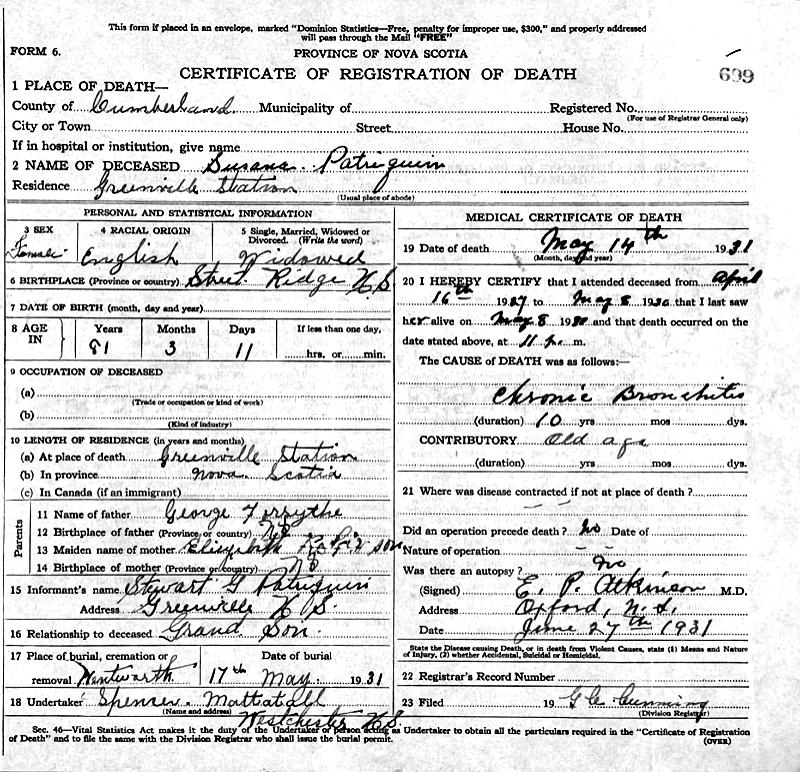 This form if placed in an envelope, marked "Dominion Statistics—Free, penalty for improper use, $300," and properly addressed
will pass through the Mail "FREE"
FORM 6.
PROVINCE OF NOVA SCOTIA
CERTIFICATE OF REGISTRATION OF DEATH
699
1 PLACE OF DEATH—
County of Cumberland Municipality of Registered No.
(For use of Registrar General only)
City or Town Street House No.
If in hospital or institution, give name
2 NAME OF DECEASED Susana Patriquin
Residence Greenville Station
(Usual place of abode)
PERSONAL AND STATISTICAL INFORMATION
3 SEX 4 RACIAL ORIGIN 5 Single, Married, Widowed or
Divorced. (Write the word)
Female English Widowed
6 BIRTHPLACE (Province or country) Street Ridge N.S
7 DATE OF BIRTH (month, day and year)
8 AGE IN Years Months Days If less than one day,
81 3 11 hrs. or min.
9 OCCUPATION OF DECEASED
(a)
(Trade or occupation or kind of work)
(b)
(Kind of industry)
10 LENGTH OF RESIDENCE (in years and months)
(a) At place of death Greenville Station
(b) In province Nova Scotia
(c) In Canada (if an immigrant)
Parents
11 Name of father George Forsythe
12 Birthplace of father (Province or country) NS
13 Maiden name of mother Elizabeth
14 Birthplace of mother (Province or country) NS
15 Informant's name Stewart G Patriquin
Address Greenville N S.
16 Relationship to deceased Grand Son.
17 Place of burial, cremation or Date of burial
removal Wentworth 17th May 1931
18 Undertaker Spencer Mattatall
(Name and address) Westchester N.S.
MEDICAL CERTIFICATE OF DEATH
19 Date of death May 14th 1931
(Month, day and year)
20 I HEREBY CERTIFY that I attended deceased from April
16th 1927 to May 8 1930 that I last saw
her alive on May 8 1930 and that death occurred on the
date stated above, at 11 p. m.
The CAUSE OF DEATH was as follows:—
Chronic Bronchitis
(duration) 10 yrs mos dys.
CONTRIBUTORY Old age
(duration) yrs mos dys.
21 Where was disease contracted if not at place of death?
Did an operation precede death? No Date of
Nature of operation
Was there an autopsy? No
(Signed) E. P. Atkinson M.D.
Address Oxford, N.S.
Date June 27th 1931
State the Disease causing Death, or in death from Violent Causes, state (1) Means and Nature
of Injury, (2) whether Accidental, Suicidal or Homicidal.
22 Registrar's Record Number
23 Filed 19 G C Cunning
(Division Registrar)
Sec. 46—Vital Statistics Act makes it the duty of the Undertaker or person acting as Undertaker to obtain all the particulars required in the "Certificate of Registration
of Death" and to file the same with the Division Registrar who shall issue the burial permit.
(OVER)